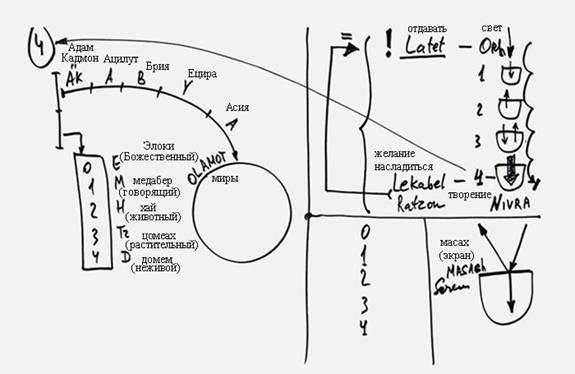 4
Адам
Кадмон
Ацилут
Брия
Ецира
Асия
AK
A
B
Y
A
Элоки
(Божественный)
0 E
1 M
медабер
(говорящий)
2 H
хай
(животный)
3 Tz
цомеах
(растительный)
4 D
домем
(неживой)
OLAMOT
миры
=
отдавать
! Latet –
свет
1
2
3
4
желание
насладиться
Lekabel
Ratzon
творение
NIVRA
0
1
2
3
4
масах
(экран)
MASACH